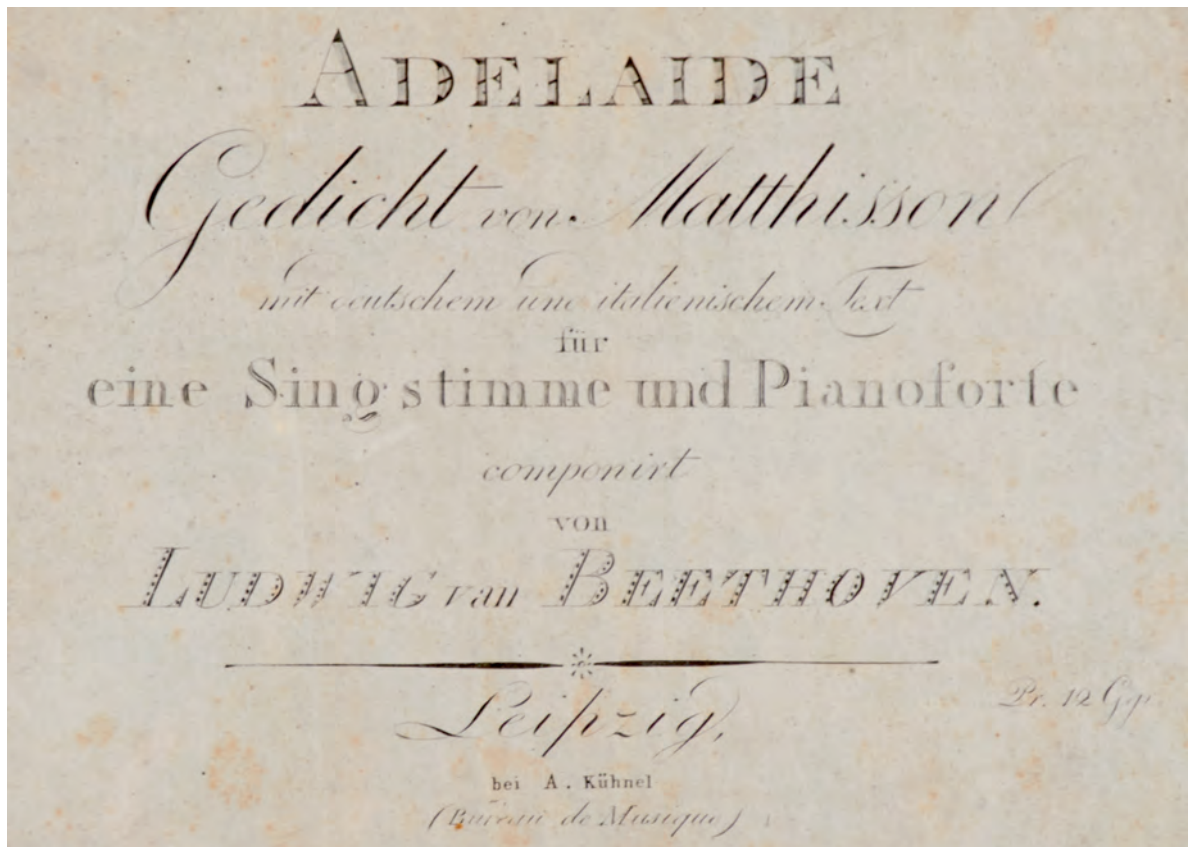 ADELAIDE
Gedicht von Matthisson
mit deutschem und italienischem Text
für
eine Singstimme und Pianoforte
componirt
von
LUDWIG van BEETHOVEN.
Leipzig,
Pr. 12 Ggr.
bei A. Kühnel
(Bureau de Musique)